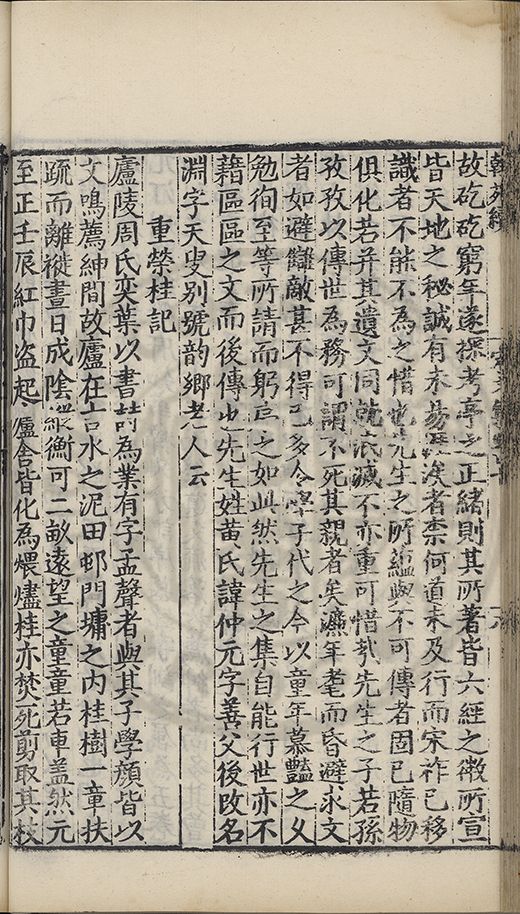 翰苑續
故矻矻窮年遂探考亭之正緒則其所著皆六經之微所宣
皆天地之秘誠有未易窺涘者柰何道未及行而宋祚已移
識者不能不為之惜也先生之所蘊與不可傳者固已隨物
俱化若并其遺文同就泯滅不亦重可惜哉先生之子若孫
孜孜以傳世為務可謂不死其親者矣濂年耄而昏避求文
者如避讎敵甚不得已多令學子代之今以童年慕豔之久
勉徇至等所請而躬序之如此然先生之集自能行世亦不
藉區區之文而後傳也先生姓黃氏諱仲元字善父後改名
淵字天叟別號韵鄉老人云
重榮桂記
廬陵周氏奕葉以書詩為業有字孟聲者與其子學顏皆以
文鳴薦紳間故廬在吉水之泥田邨門墉之内桂樹一章扶
疏而離褷晝日成陰縱衡可二畝遠望之童童若車盖然元
至正壬辰紅巾盜起廬舍皆化為煨燼桂亦焚死剪取其枝